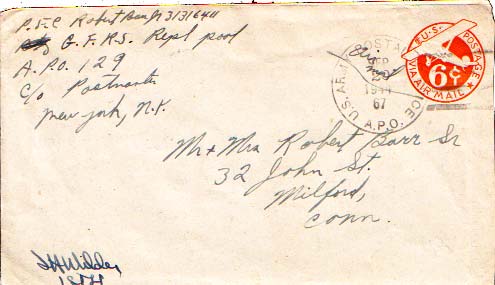 P.F.C. Robert Barr Jr 31316411
G.F.R.S. Repl pool
A.P.O. 129
c/o Postmaster
New York, N.Y.
U.S. POSTAGE
VIA AIR MAIL
6¢
U.S. ARMY POSTAL SERVICE
SEP
1944
67
A.P.O.
Mr + Mrs Robert Barr Sr
32 John St.
Milford,
Conn.